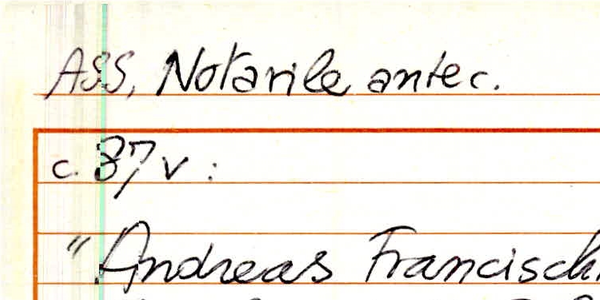 ASS, Notarile antec.
c. 37 v :
"Andreas Francisch